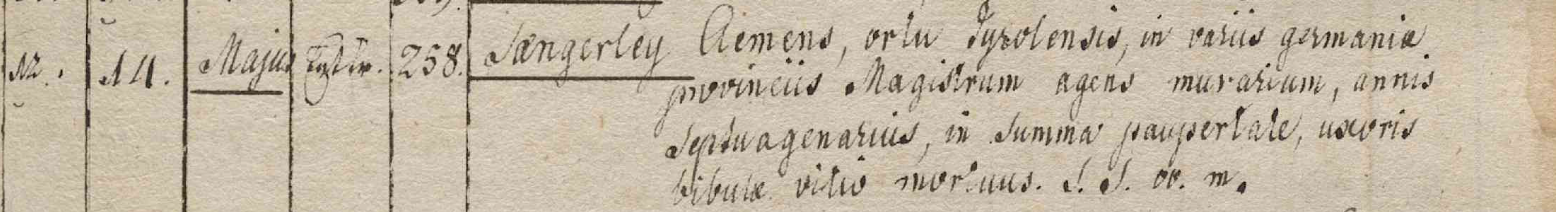 12. 14. Majus 258. Sængerley Clemens, ortu Tyrolensis, in variis germaniæ
provinciis Magistrum agens murarium, annis
Septuagenarius, in Summa paupertate, uxoris
bibulæ vitio mortuus. S. S. oo. m.